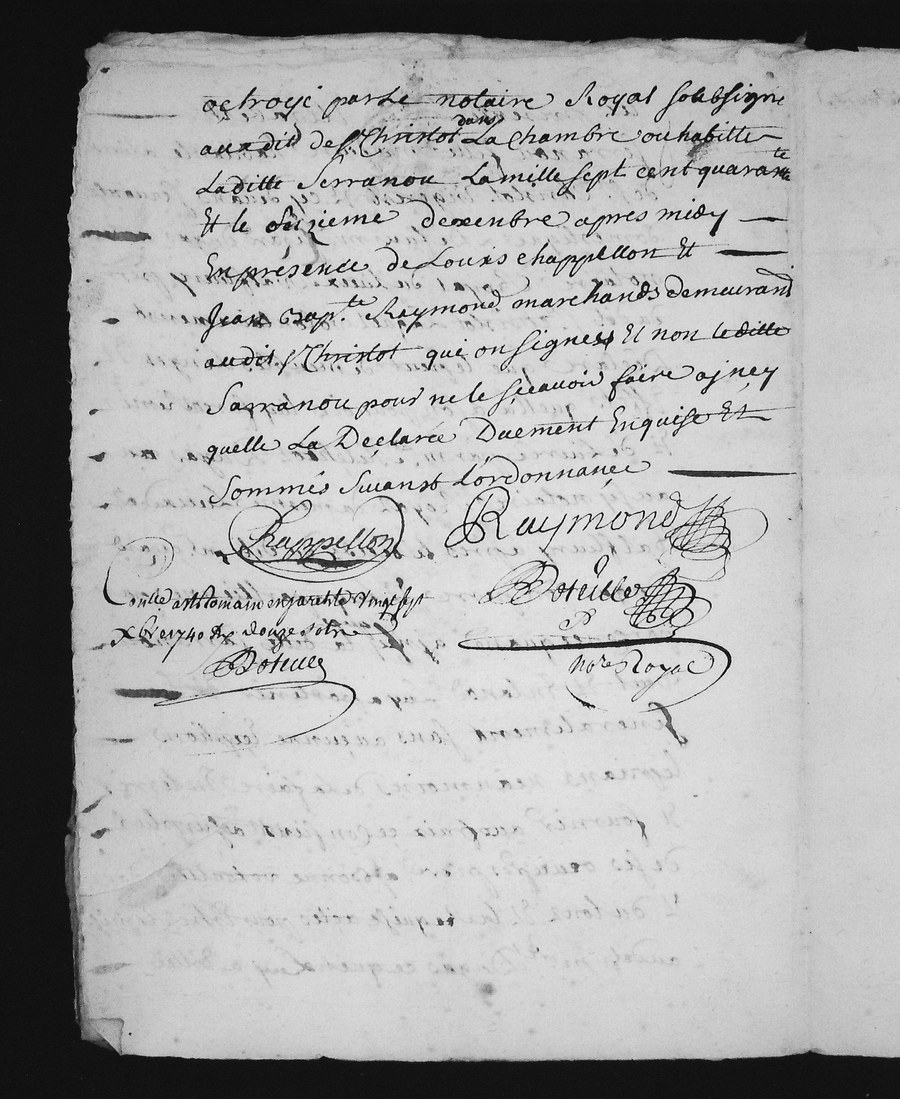 octroyé par Le notaire Royal soubsigne
audit de st Christot dans La Chambre ou habitte
Laditte Serranou Lan mille sept cent quarante
Et le onzieme dexenbre apres midy
En présence de Louis chappellon Et
Jean Bapte. Raymond marchands demeurand
audit st Christot qui on signes Et non laditte
Sarranou pour ne le scavoir faire ajncy
quelle La Déclarée Duement Enquise Et
Sommés Suivant Lordonnance
Chappellon Raymond
Boteille
Conllé a st Romain en jarest le vingt sept
Xbre 1740 Rx douze sols
Boteille
nore Royal